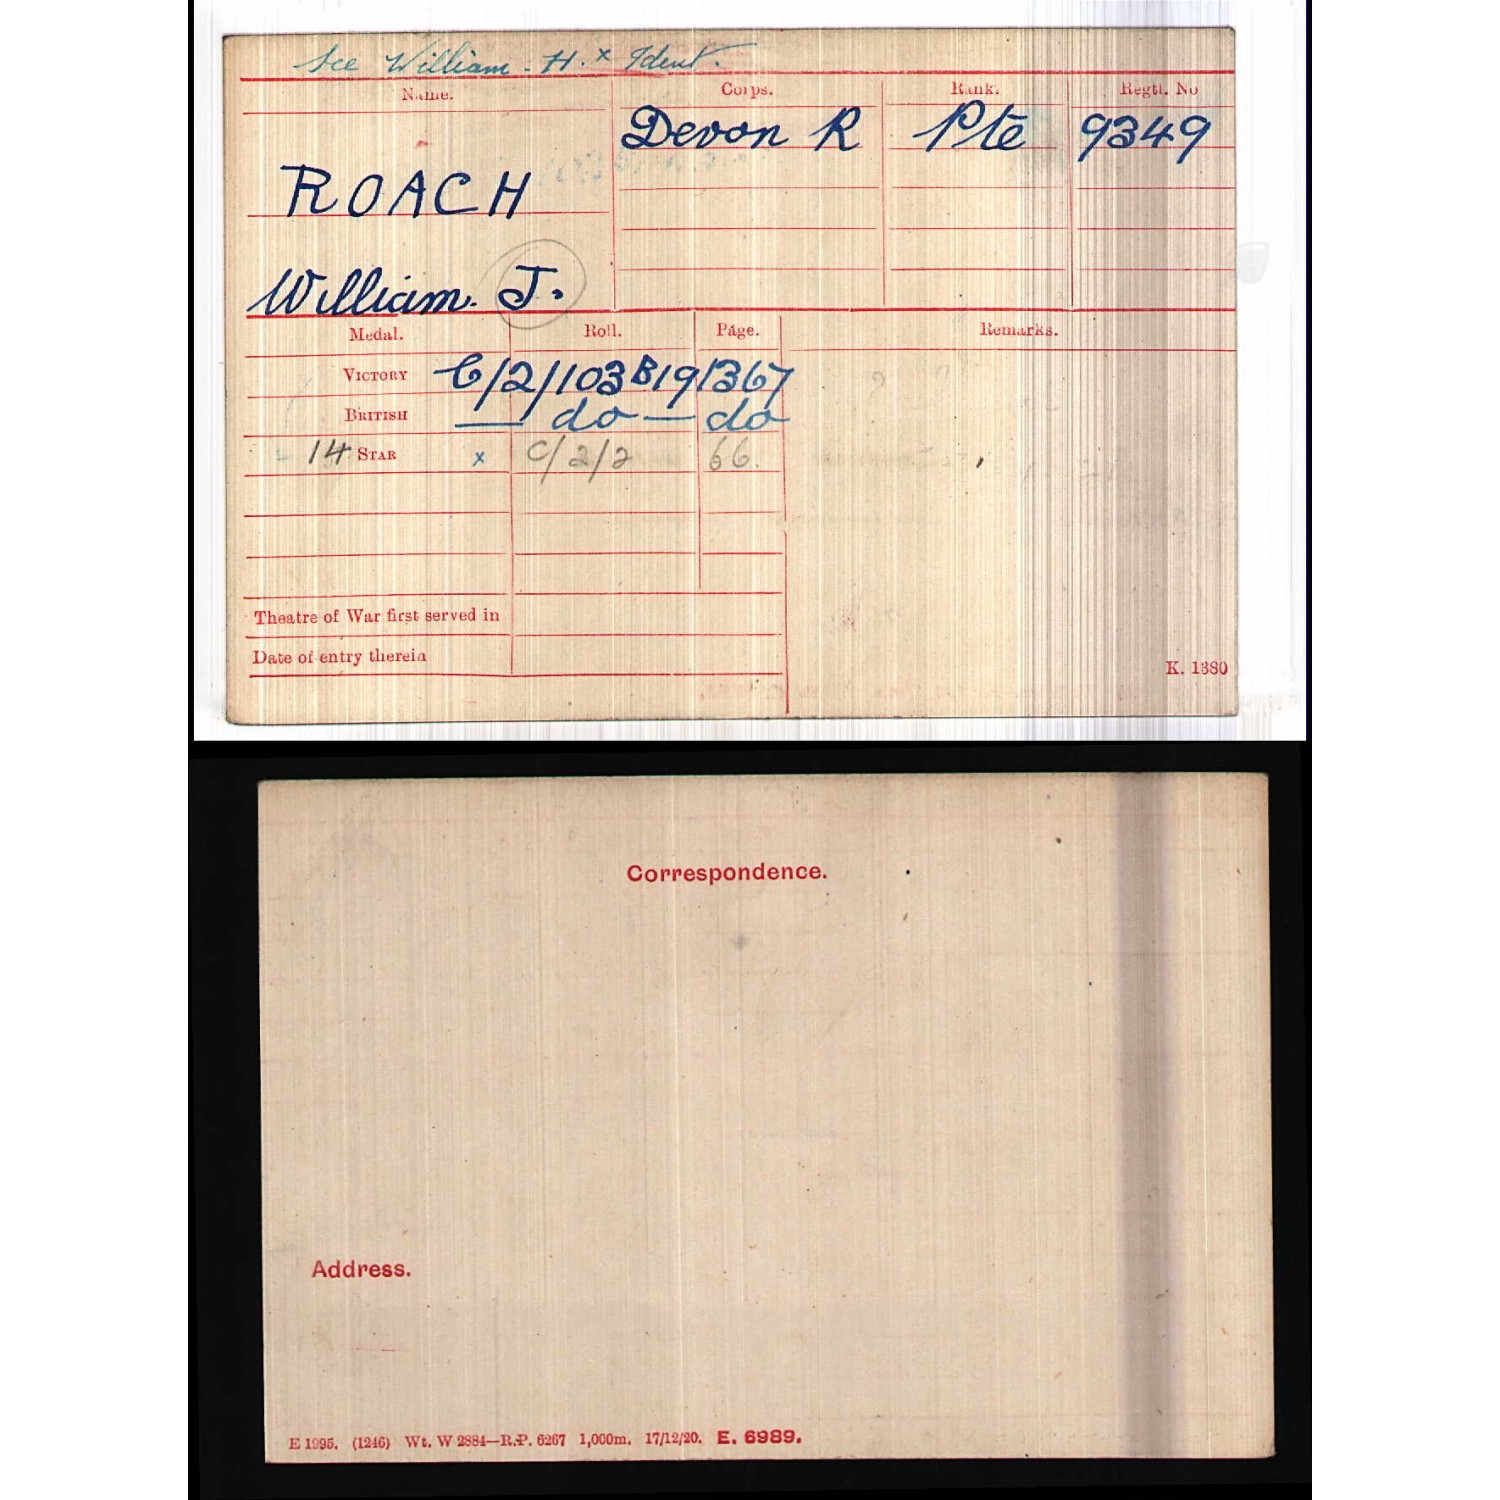 See William. H. x Ident.
Name. Corps. Rank. Regtl. No
Devon R Pte 9349
ROACH
William. J.
Medal. Roll. Page. Remarks.
VICTORY C/2/103B19 1367
BRITISH — do — do
14 STAR x C/2/2 66.
Theatre of War first served in
Date of entry therein
K. 1380
Correspondence.
Address.
E 1995. (1246) Wt. W 2884—R.P. 6267 1,000m. 17/12/20. E. 6989.